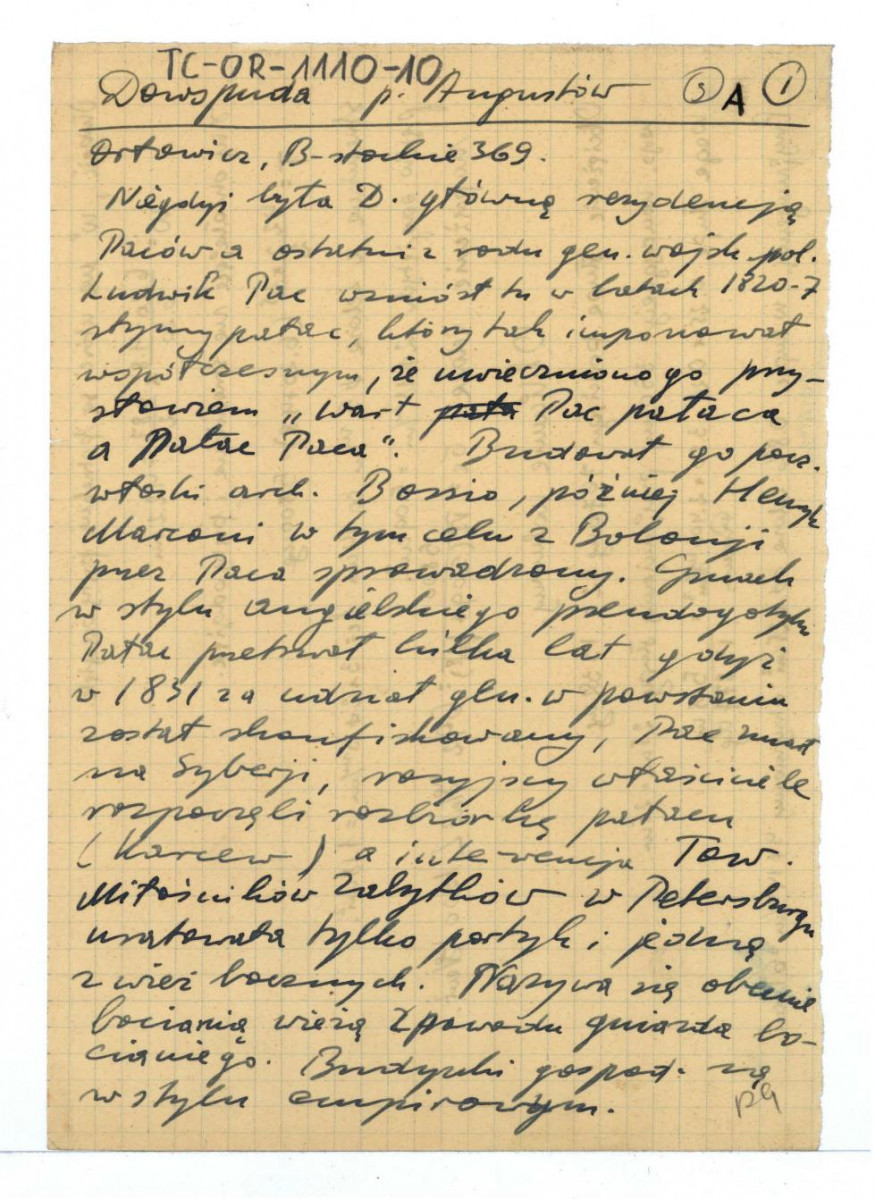 TC-OR-1110-10
Dowspuda p. Augustów 3 A 1
Orłowicz, B-stockie 369.
Niegdyś była D. główną rezydencją
Paców a ostatni z rodu gen. wojsk pol.
Ludwik Pac wzniósł tu w latach 1820-7
słynny pałac, który tak imponował
współczesnym, że uwieczniono go przy-
słowiem „wart Pac pałaca
a Pałac Paca". Budował go pocz.
włoski arch. Bossio, później Henryk
Marconi w tym celu z Bolonji
przez Paca sprowadzony. Gmach
w stylu angielskiego pseudogotyku
Pałac przetrwał kilka lat gdyż
w 1831 za udział gen. w powstaniu
został skonfiskowany, Pac zmarł
na Syberji, rosyjscy właściciele
rozpoczęli rozbiórkę pałacu
(Karcew) a interwencja Tow.
Miłośników Zabytków w Petersburgu
uratowała tylko portyk i jedną
z wież bocznych. Nazywa się obecnie
bocianią wieżą z powodu gniazda bo-
cianiego. Budynki gospod. są
w stylu empirowym.